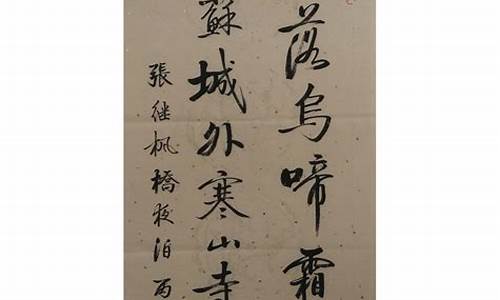 落烏啼霜
蘇城外寒山寺
張继枫橋夜泊丙